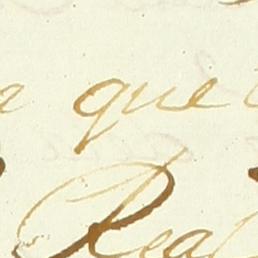 que
Real